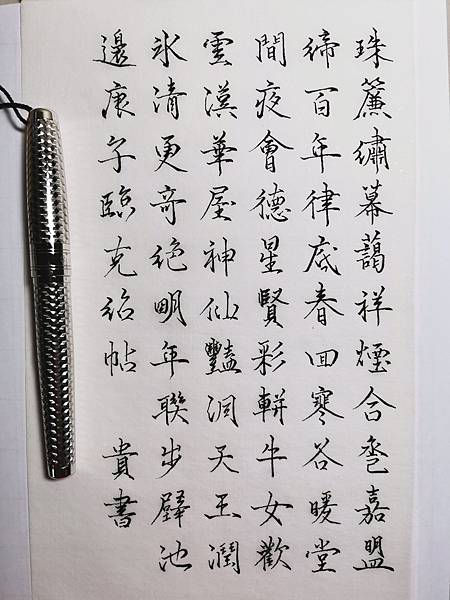 珠簾繡幕藹祥煙合巹嘉盟
締百年律底春回寒谷暖堂
間夜會德星賢彩軿牛女歡
雲漢華屋神仙豔洞天玉潤
氷清更奇絕明年聯步璧池
邊庚子臨克紹帖 貴書